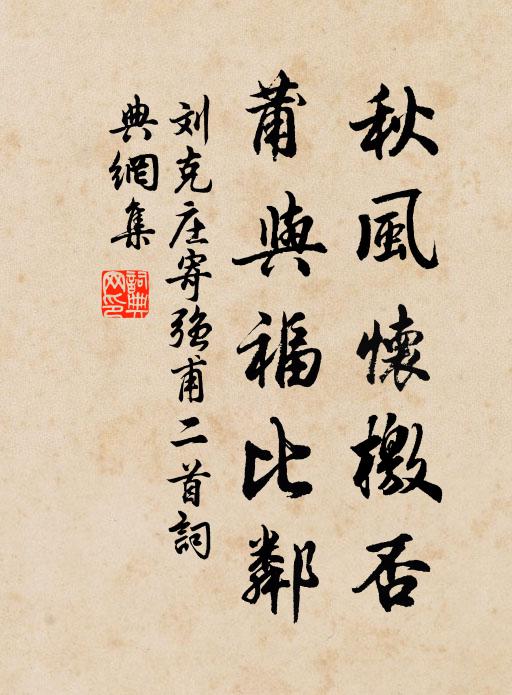 秋風懷檄否
莆與福比鄰
刘克庄寄强甫二首詞
典網集
詞典网印